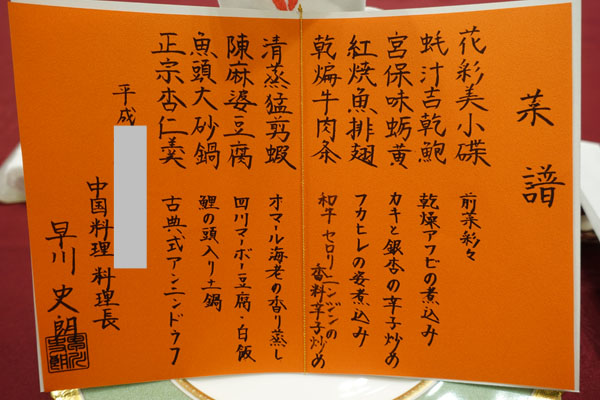 菜譜
花彩美小碟 前菜彩々
蚝汁吉乾鮑 乾燥アワビの煮込み
宮保味蛎黄 カキと銀杏の辛子炒め
紅焼魚排翅 フカヒレの姿煮込み
乾煸牛肉条 和牛 セロリ ニンジンの香料辛子炒め
清蒸猛蝦 オマール海老の香り蒸し
陳麻婆豆腐 四川マーボー豆腐・白飯
魚頭大砂鍋 鯉の頭入り土鍋
正宗杏仁羹 古典式アンニンドウフ
平成
中国料理 料理長
早川 史朗